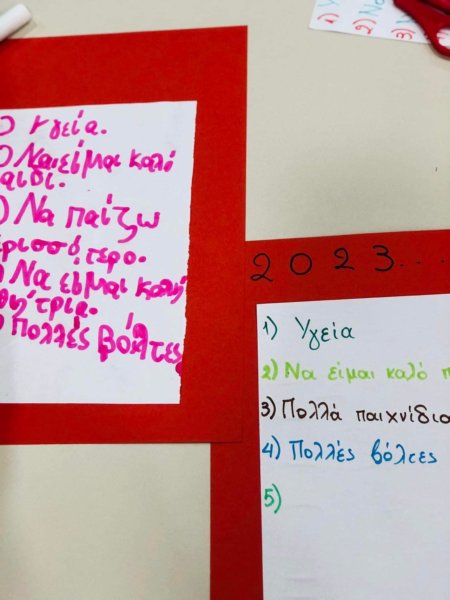 Υγεία.
Να είμαι καλό
αιδι.
Να παίζω
ερισσότερο.
Να είμαι καλή
θήτρια.
Πολλές βόλτες
2023...
1) Υγεία
2) Να είμαι καλό π
3) Πολλά παιχνίδια
4) Πολλές βόλτες
5)
1) Υ
2) Να
3)